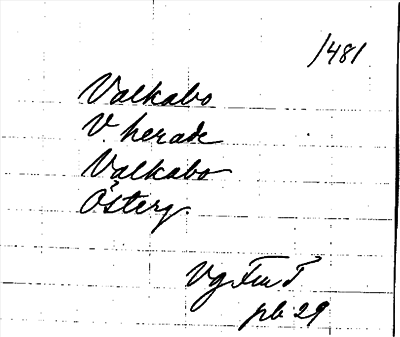 1481
Valkabo
V. herade
Valkabo
Österg.
Vg Fm T
pb 29